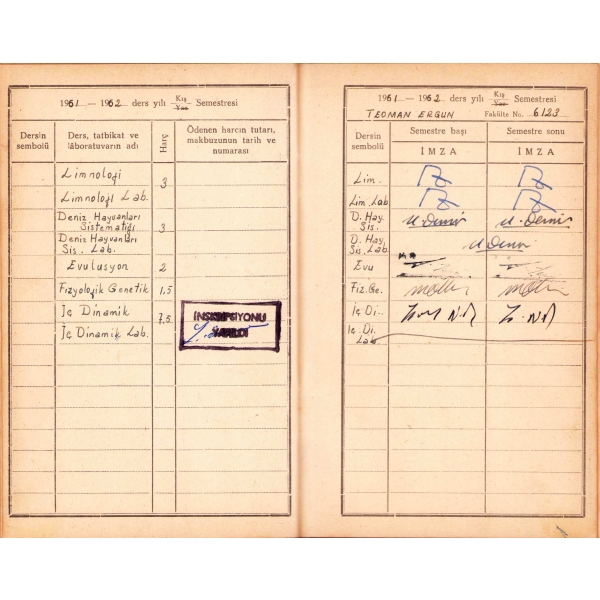 1961 — 1962 ders yılı Kış Yaz Semestresi
Dersin sembolü
Ders, tatbikat ve lâboratuvarın adı
Harç
Ödenen harcın tutarı, makbuzunun tarih ve numarası
Limnoloji 3
Limnoloji Lab.
Deniz Hayvanları
Sistematiği 3
Deniz Hayvanları
Sis. Lab.
Evulusyon 2
Fızyolojik Genetik 1,5
İç Dinamik 7,5
İç Dinamik Lab.
İNSKRİPSİYONU
YAPILDI
1961 — 1962 ders yılı Kış Yaz Semestresi
TEOMAN ERGUN Fakülte No. 6123
Dersin sembolü
Semestre başı
Semestre sonu
İMZA
İMZA
Lim.
Lim. Lab
D. Hay.
Sis.
D. Hay.
Sis. Lab
Evu
Fiz. Ge.
İç Di..
İç. Di.
Lab